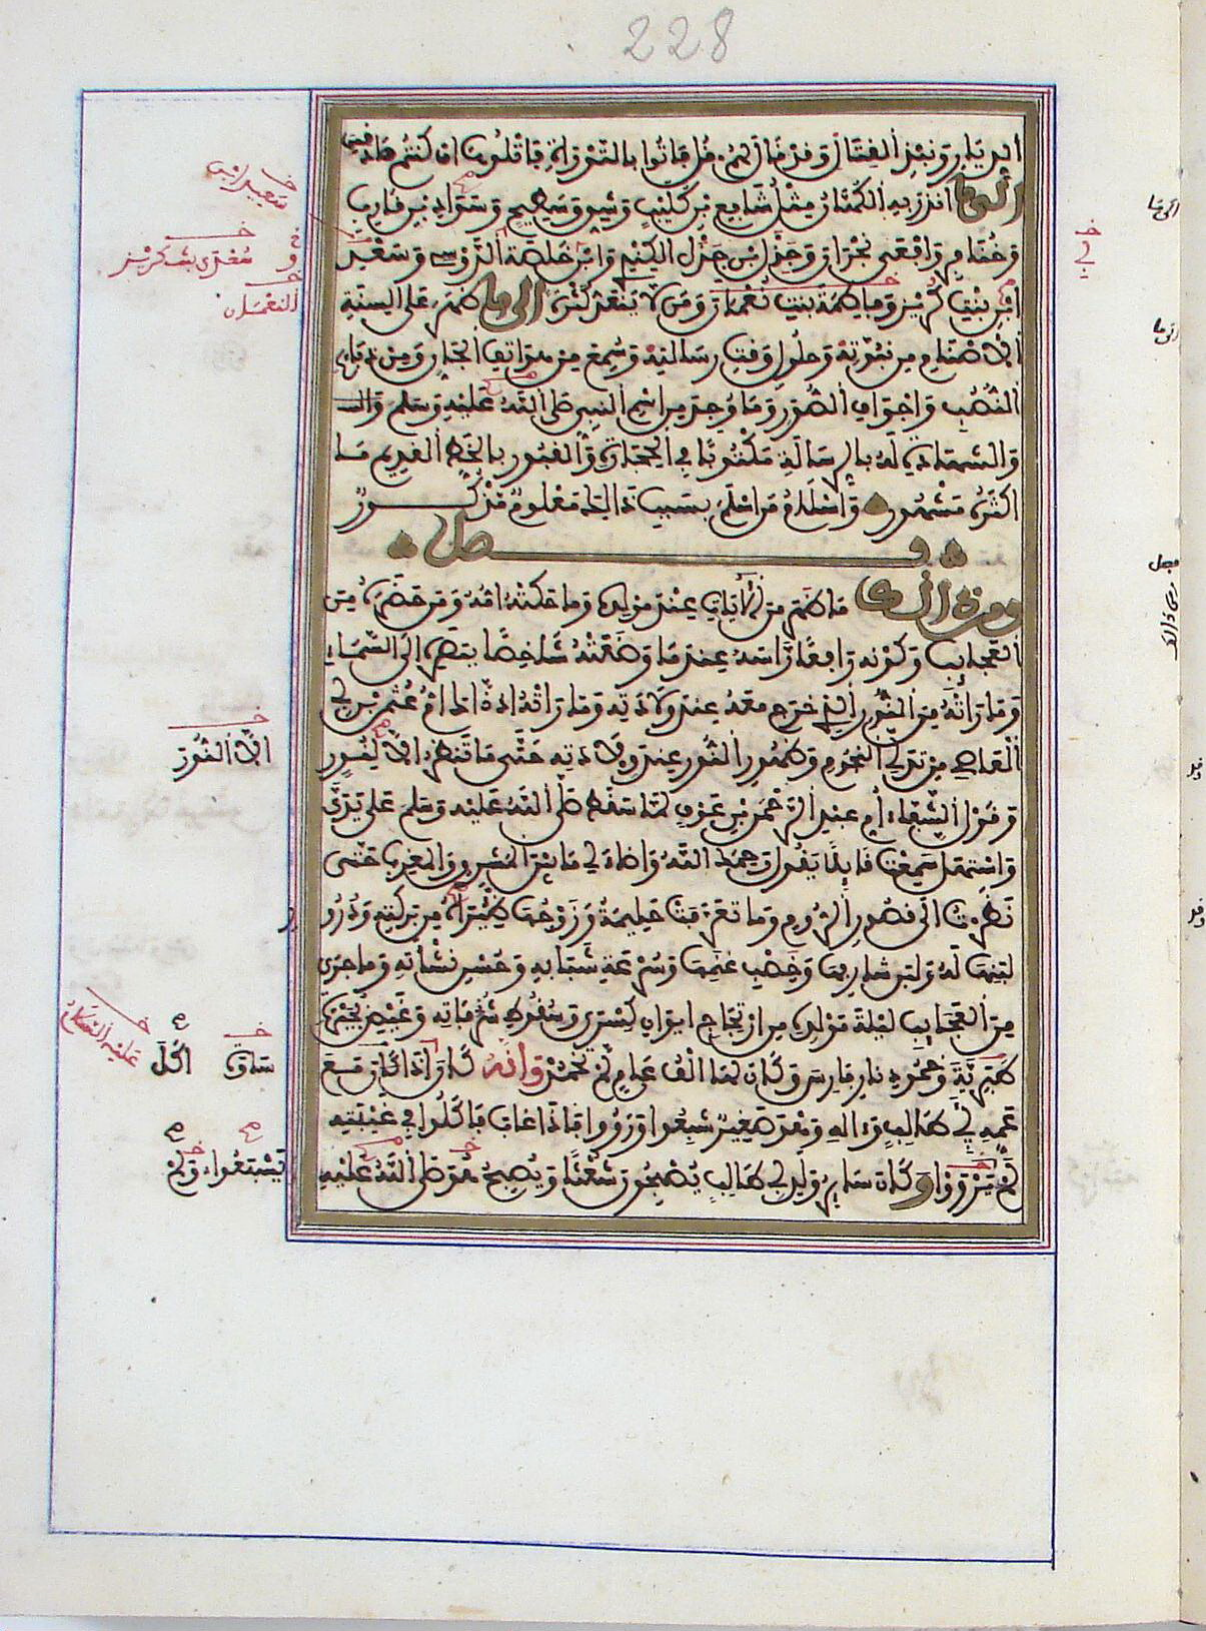 228
الديار ونبذ القتال وقد قال لهم قل فاتوا بالتورية فاتلوها ان كنتم صادقين
الى ما انذر به الكهان مثل شافع بن كليب وشق وسطيح وسواد بن قارب
وخنافر وافعى نجران وجذل بن جذل الكندي وابن خلصة الدوسي وسعد
ابن بنت كريز وفاطمة بنت نعمان ومن لا ينعد كثرة الى ما ظهر على السنة
الاصنام من نبوته وحلول وقت رسالته وسمع من هواتف الجان ومن ذبايح
النصب واجواف الصور وما وجد من اسم النبي صلى الله عليه وسلم
والشهادة له بالرسالة مكتوبا في الحجارة والقبور بالخط القديم ما
اكثره مشهور واسلام من اسلم بسبب ذلك معلوم مذكور
فصل
ومن ذلك ما ظهر من الايات عند مولده وما حكته امه ومن حضره من
العجايب وكونه رافعا راسه عند ما وضعته شاخصا ببصره الى السماء
وما راته من النور الذي خرج معه عند ولادته وما راته اذ ذاك ام عثمن بن ابي
العاصي من تدلي النجوم وظهور النور عند ولادته حتى ما تنظر الا النور
وقول الشفاء ام عبد الرحمن بن عوف لما سقط صلى الله عليه وسلم على يدي
واستهل سمعت قائلا يقول رحمك الله واضاء لي ما بين المشرق والمغرب حتى
نظرت الى قصور الروم وما تعرفت حليمة وزوجها ظئراه من بركته ودرور
لبنها له ولبن شارفها وخصب غنمها وسرعة شبابه وحسن نشاته وما جرى
من العجايب ليلة مولده من ارتجاج ايوان كسرى وسقوط شرفاته وغيض بحيرة
طبرية وخمود نار فارس وكان لها الف عام لم تخمد وانه كان اذا اكل مع
عمه ابي طالب وءاله وهو صغير شبعوا ورووا فاذا غاب فاكلوا في غيبته
لم يرووا وكان ساير ولد ابي طالب يصبحون شعثا ويصبح هو صلى الله عليه
سعيد بن
سفدى بنت كريز
النعمان
الا النور
ساوة
اكل
عليه السلام
يشبعوا ولم